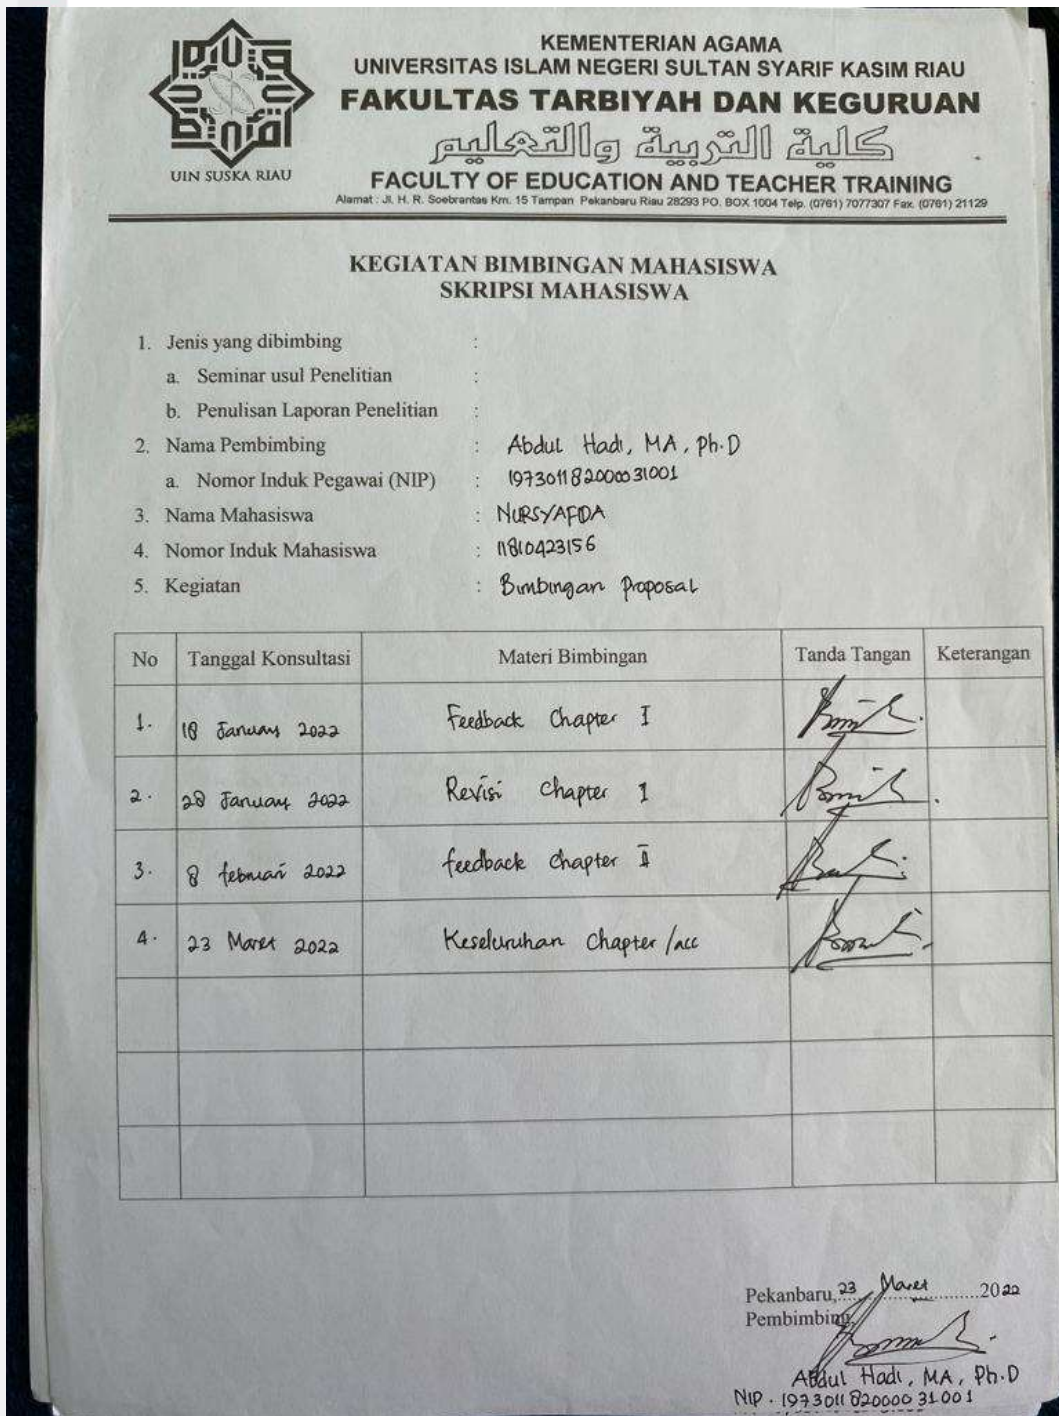 UIN SUSKA RIAU
KEMENTERIAN AGAMA
UNIVERSITAS ISLAM NEGERI SULTAN SYARIF KASIM RIAU
FAKULTAS TARBIYAH DAN KEGURUAN
كلية التربية والتعليم
FACULTY OF EDUCATION AND TEACHER TRAINING
Alamat : Jl. H. R. Soebrantas Km. 15 Tampan Pekanbaru Riau 28293 PO. BOX 1004 Telp. (0761) 7077307 Fax. (0761) 21129
KEGIATAN BIMBINGAN MAHASISWA
SKRIPSI MAHASISWA
1. Jenis yang dibimbing :
a. Seminar usul Penelitian :
b. Penulisan Laporan Penelitian :
2. Nama Pembimbing : Abdul Hadi, MA, Ph.D
a. Nomor Induk Pegawai (NIP) : 197301182000031001
3. Nama Mahasiswa : NURSYAFIDA
4. Nomor Induk Mahasiswa : 11810423156
5. Kegiatan : Bimbingan Proposal
No Tanggal Konsultasi Materi Bimbingan Tanda Tangan Keterangan
1. 18 January 2022 Feedback Chapter I
2. 28 January 2022 Revisi Chapter 1
3. 8 februari 2022 feedback chapter II
4. 23 Maret 2022 Keseluruhan Chapter /acc
Pekanbaru, 23 Maret 2022
Pembimbing,
Abdul Hadi, MA, Ph.D
NIP. 197301182000031001